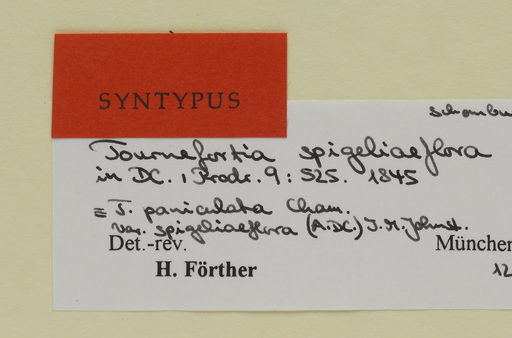 SYNTYPUS
Schombu
Tournefortia spigeliaeflora
in DC., Prodr. 9: 525. 1845
≡ T. paniculata Cham.
var. spigeliaeflora (A.DC.) I.M. Johnst.
Det.-rev. München
H. Förther 12